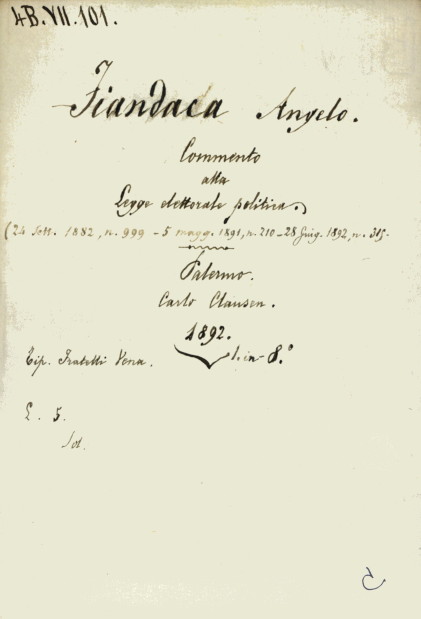 4B.VII.101.
Fiandaca Angelo.
Commento
alla
Legge elettorale politica.
(24 Sett. 1882, n. 999 - 5 magg. 1891, n. 210 - 28 Giug. 1892, n. 315.
Palermo.
Carlo Clausen.
1892.
Tip. Fratelli Vena. 1. in-8.°
L. 5.